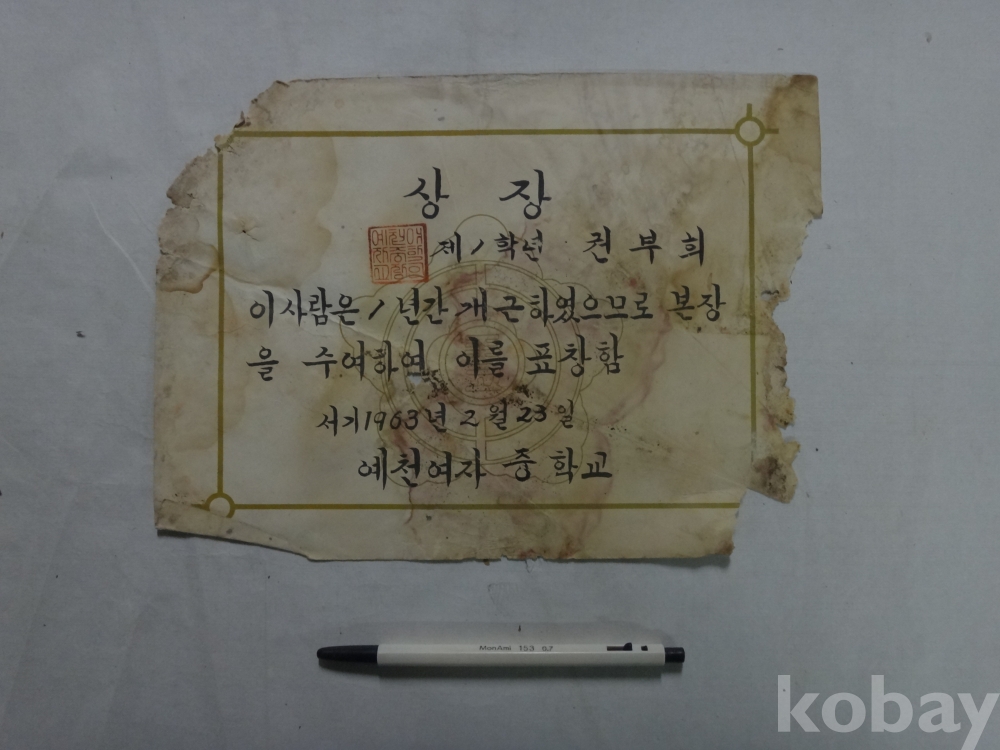 상 장
제 1 학년 권 부 희
이 사람은 1 년간 개근하였으므로 본장
을 수여하연 이를 표창함
서기 1963 년 2 월 23 일
예천여자 중학교
MonAmi 153 0.7
kobay